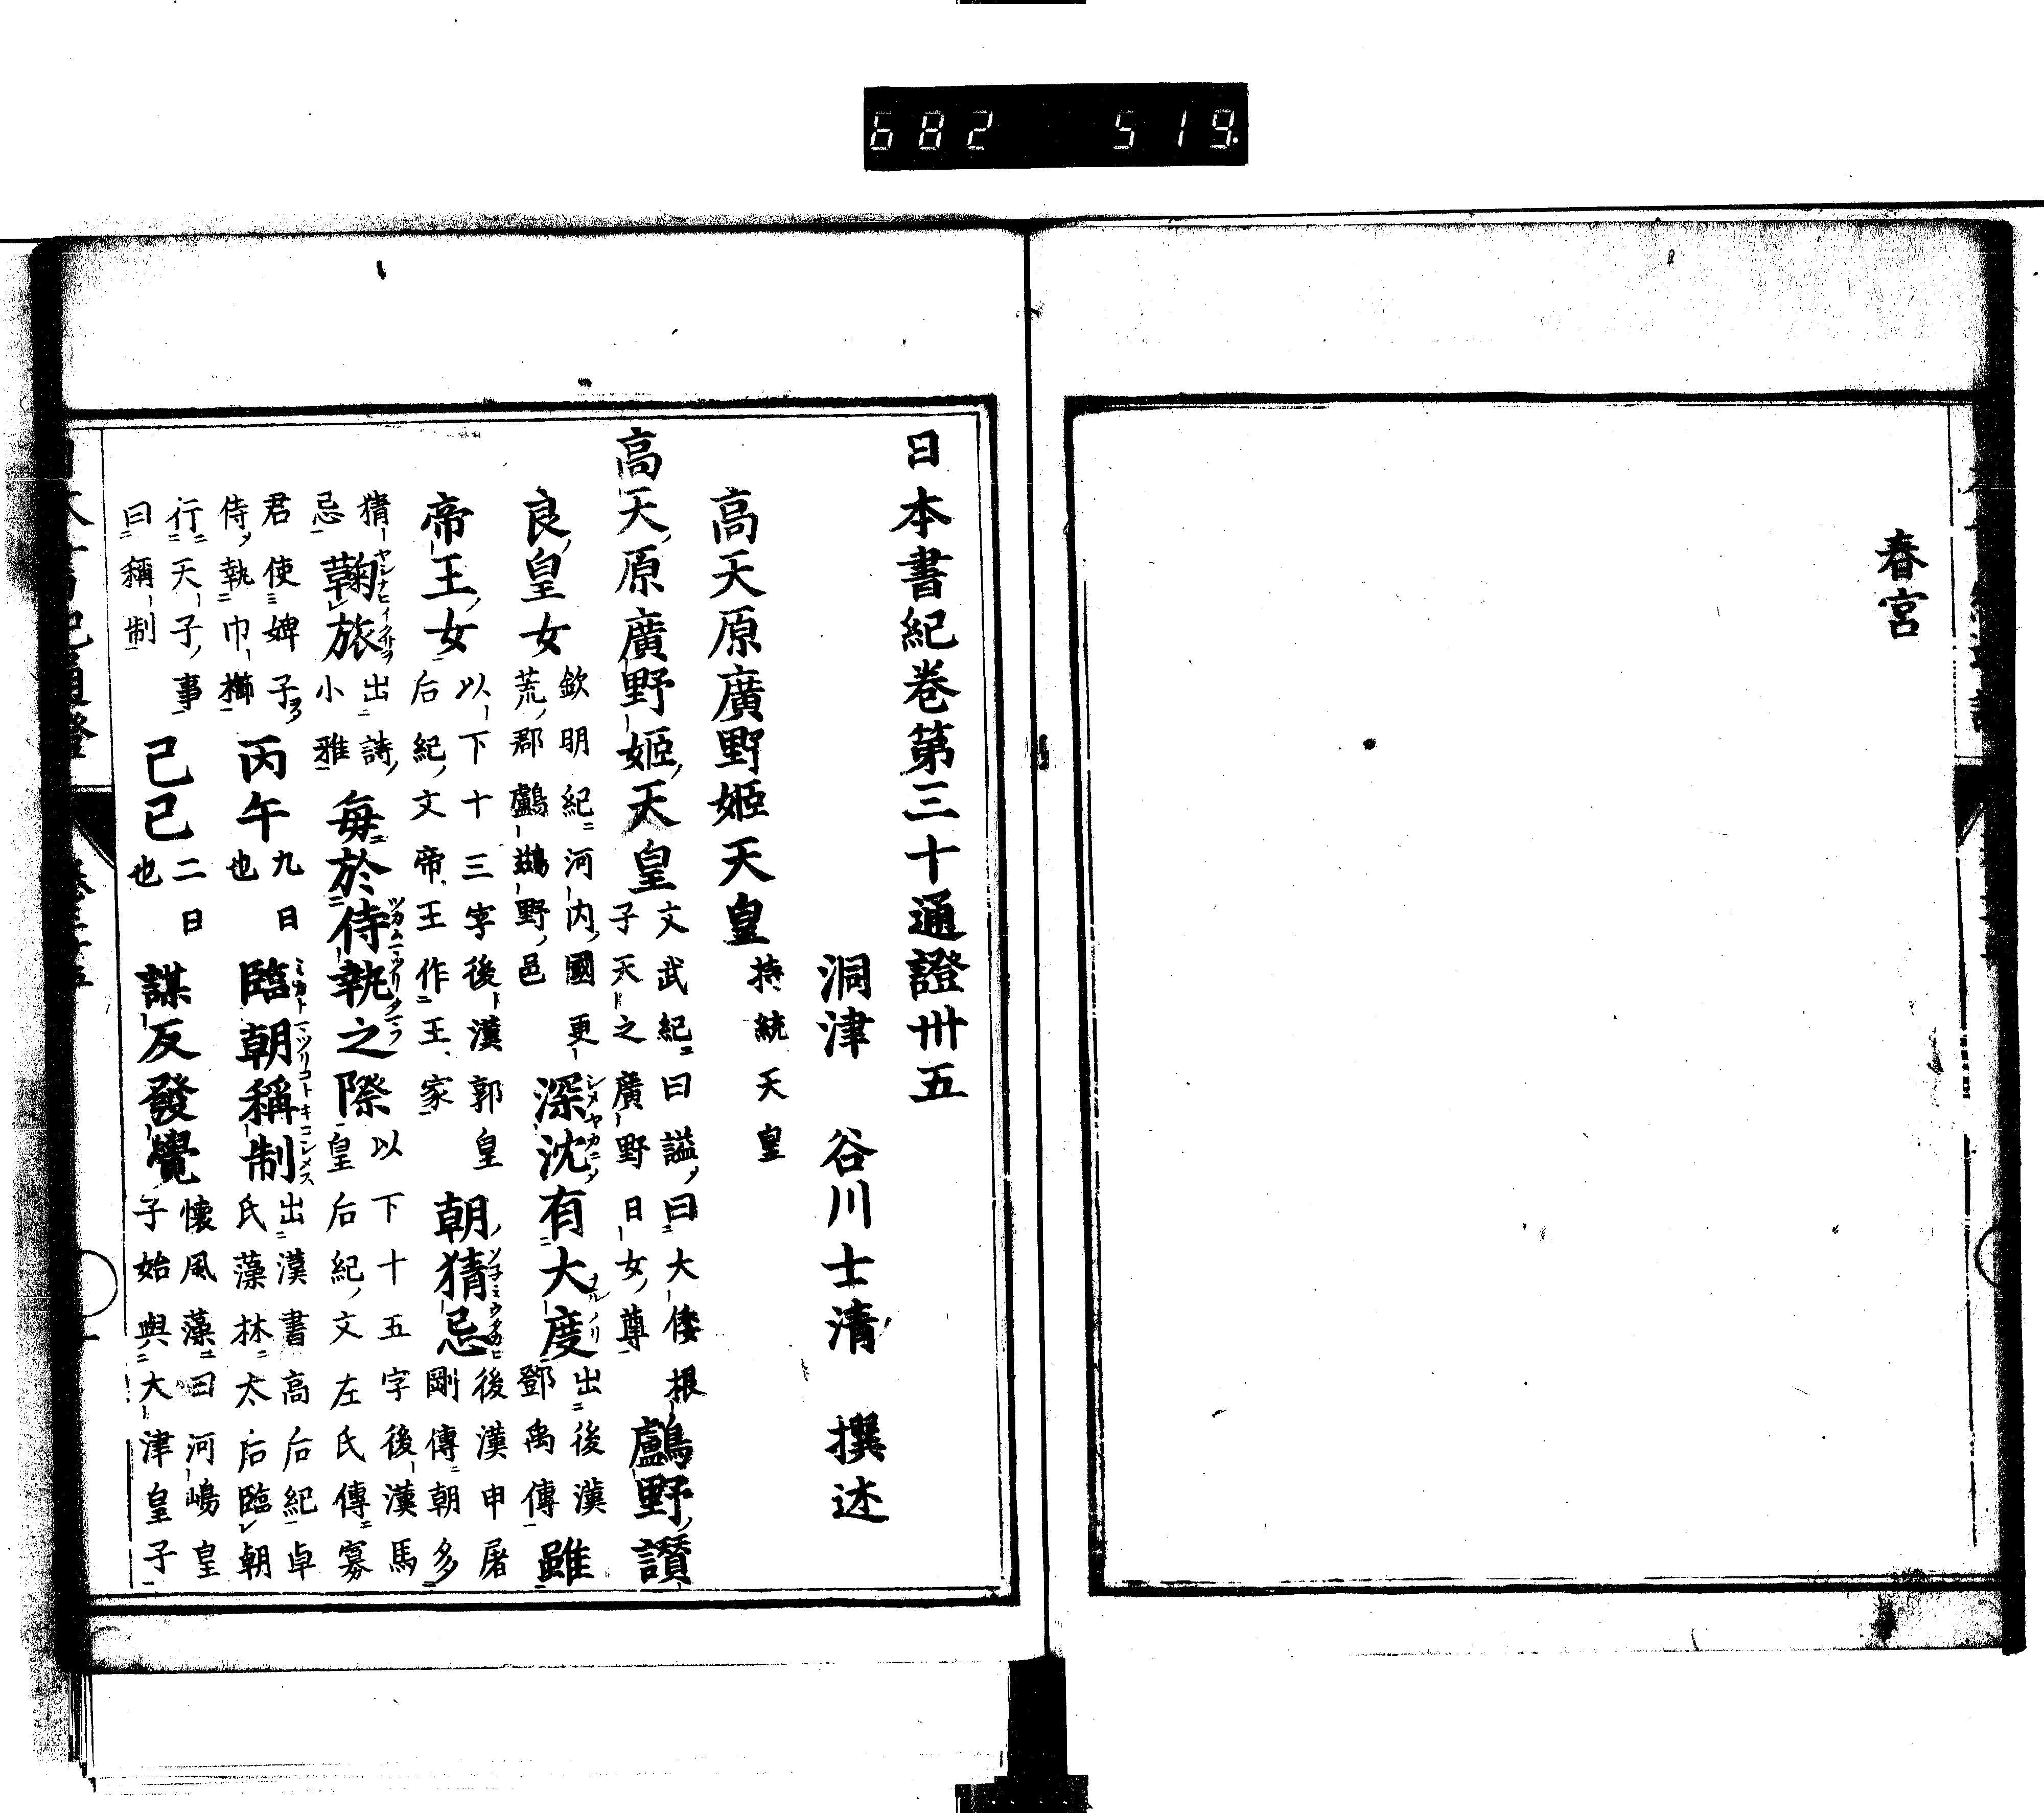 682 519
春宮
日本書紀巻第三十通證卅五
洞津 谷川士清 撰述
高天原廣野姬天皇 持統天皇
高天原廣野姬天皇 文武紀曰諡曰大倭根子天之廣野日女尊 鸕野讃
良皇女 欽明紀河内國更荒郡鸕鷀野邑 深沈有大度 出後漢鄧禹傳 雖
帝王女 以下十三字後漢郭皇后紀文帝王作王家 朝猜忌 後漢申屠剛傳朝多
猜忌 鞠旅 出詩小雅 每於侍執之際 以下十五字後漢馬皇后紀文左氏傳寡
君使婢子侍執巾櫛 丙午 九日也 臨朝稱制 出漢書高后紀卓氏藻林太后臨朝
行天子事曰稱制 己巳 二日也 謀反發覺 懷風藻曰河嶋皇子始與大津皇子